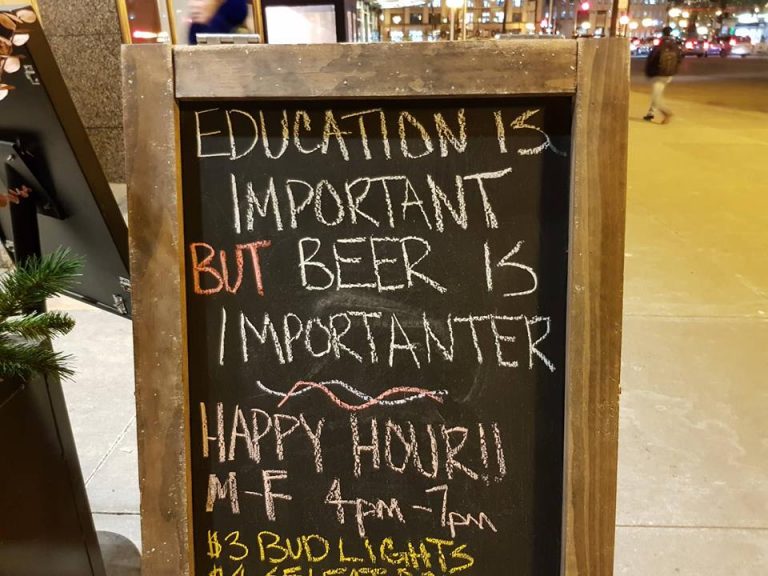 EDUCATION IS
IMPORTANT
BUT BEER IS
IMPORTANTER
HAPPY HOUR!!
M-F 4pm-7pm
$3 BUD LIGHTS